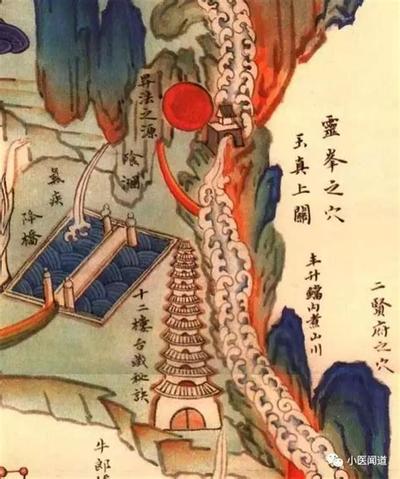 靈峯之穴
玉真上關
二賢府之穴
半升鐺内煮山川
昇法之源
降橋
十二樓台藏秘訣
牛郎
小医闻道